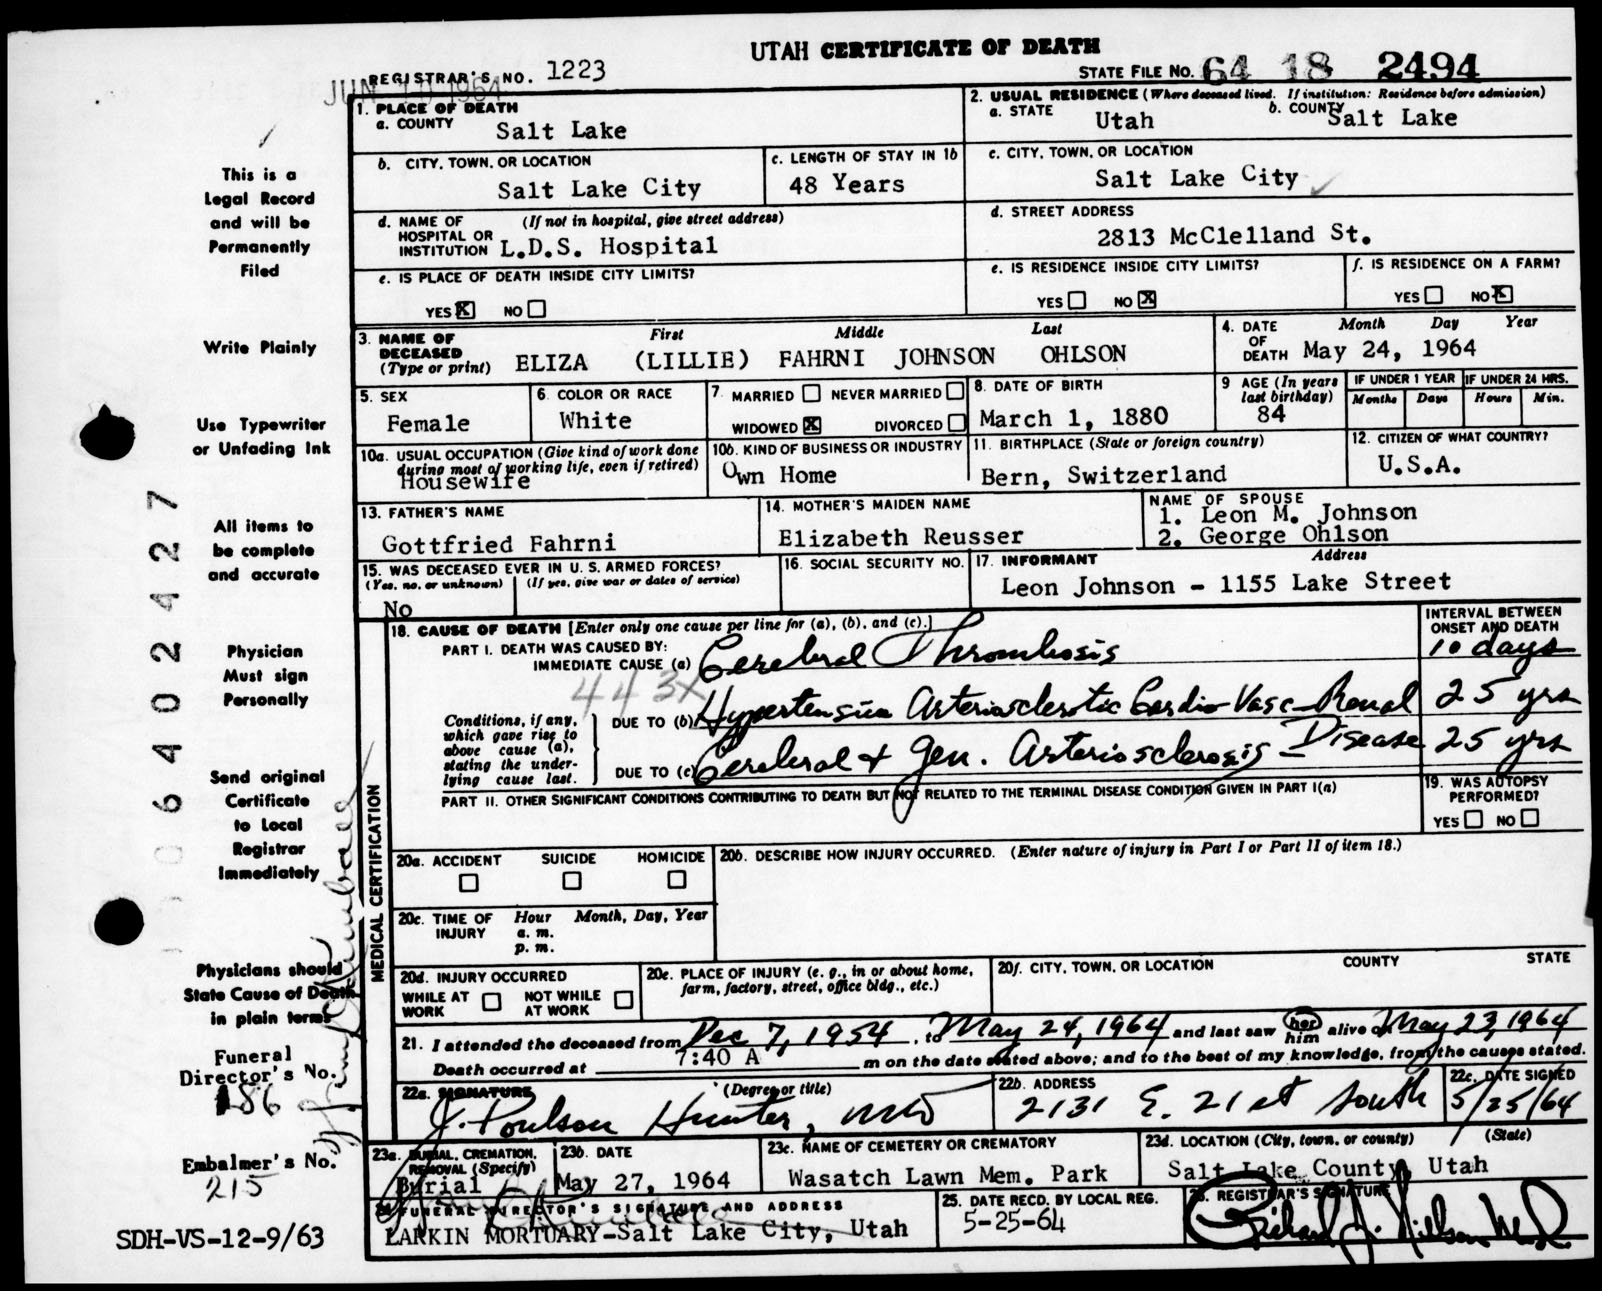 UTAH CERTIFICATE OF DEATH
REGISTRAR'S NO. 1223
STATE FILE NO. 64 18 2494
JUN 10 1964
1. PLACE OF DEATH
a. COUNTY Salt Lake
2. USUAL RESIDENCE (Where deceased lived. If institution: Residence before admission)
a. STATE Utah b. COUNTY Salt Lake
b. CITY, TOWN, OR LOCATION Salt Lake City
c. LENGTH OF STAY IN 1b 48 Years
c. CITY, TOWN, OR LOCATION Salt Lake City
d. NAME OF HOSPITAL OR INSTITUTION (If not in hospital, give street address) L.D.S. Hospital
d. STREET ADDRESS 2813 McClelland St.
e. IS PLACE OF DEATH INSIDE CITY LIMITS?
YES X NO
e. IS RESIDENCE INSIDE CITY LIMITS?
YES NO X
f. IS RESIDENCE ON A FARM?
YES NO X
3. NAME OF DECEASED (Type or print) First Middle Last
ELIZA (LILLIE) FAHRNI JOHNSON OHLSON
4. DATE OF DEATH Month Day Year
May 24, 1964
5. SEX Female
6. COLOR OR RACE White
7. MARRIED NEVER MARRIED
WIDOWED X DIVORCED
8. DATE OF BIRTH March 1, 1880
9 AGE (In years last birthday) 84
IF UNDER 1 YEAR Months Days
IF UNDER 24 HRS. Hours Min.
10a. USUAL OCCUPATION (Give kind of work done during most of working life, even if retired) Housewife
10b. KIND OF BUSINESS OR INDUSTRY Own Home
11. BIRTHPLACE (State or foreign country) Bern, Switzerland
12. CITIZEN OF WHAT COUNTRY? U.S.A.
13. FATHER'S NAME Gottfried Fahrni
14. MOTHER'S MAIDEN NAME Elizabeth Reusser
NAME OF SPOUSE
1. Leon M. Johnson
2. George Ohlson
15. WAS DECEASED EVER IN U.S. ARMED FORCES?
(Yes, no, or unknown) (If yes, give war or dates of service)
No
16. SOCIAL SECURITY NO.
17. INFORMANT Address
Leon Johnson - 1155 Lake Street
MEDICAL CERTIFICATION
18. CAUSE OF DEATH [Enter only one cause per line for (a), (b), and (c).]
INTERVAL BETWEEN ONSET AND DEATH
PART I. DEATH WAS CAUSED BY:
IMMEDIATE CAUSE (a) Cerebral Thrombosis 10 days
443X
Conditions, if any, which gave rise to above cause (a), stating the underlying cause last.
DUE TO (b) Hypertension Arteriosclerotic Cardio-Vasc-Renal 25 yrs
DUE TO (c) Cerebral + Gen. Arteriosclerosis - Disease 25 yrs
PART II. OTHER SIGNIFICANT CONDITIONS CONTRIBUTING TO DEATH BUT NOT RELATED TO THE TERMINAL DISEASE CONDITION GIVEN IN PART I(a)
19. WAS AUTOPSY PERFORMED?
YES NO
20a. ACCIDENT SUICIDE HOMICIDE
20b. DESCRIBE HOW INJURY OCCURRED. (Enter nature of injury in Part I or Part II of item 18.)
20c. TIME OF INJURY Hour Month, Day, Year
a. m.
p. m.
20d. INJURY OCCURRED
WHILE AT WORK NOT WHILE AT WORK
20e. PLACE OF INJURY (e. g., in or about home, farm, factory, street, office bldg., etc.)
20f. CITY, TOWN, OR LOCATION COUNTY STATE
21. I attended the deceased from Dec 7, 1954, to May 24, 1964 and last saw her him alive on May 23, 1964
Death occurred at 7:40 A m on the date stated above; and to the best of my knowledge, from the causes stated.
22a. SIGNATURE (Degree or title)
J. Poulson Hunter, MD
22b. ADDRESS 2131 E. 21st South
22c. DATE SIGNED 5/25/64
23a. BURIAL, CREMATION, REMOVAL (Specify) Burial
23b. DATE May 27, 1964
23c. NAME OF CEMETERY OR CREMATORY Wasatch Lawn Mem. Park
23d. LOCATION (City, town, or county) (State)
Salt Lake County, Utah
24. FUNERAL DIRECTOR'S SIGNATURE AND ADDRESS
LARKIN MORTUARY-Salt Lake City, Utah
25. DATE RECD. BY LOCAL REG. 5-25-64
26. REGISTRAR'S SIGNATURE
Richard J. Nielson M.D.
This is a
Legal Record
and will be
Permanently
Filed
Write Plainly
Use Typewriter
or Unfading Ink
All items to
be complete
and accurate
Physician
Must sign
Personally
Send original
Certificate
to Local
Registrar
Immediately
Physicians should
State Cause of Death
in plain terms
Funeral
Director's No.
186
Embalmer's No.
215
SDH-VS-12-9/63